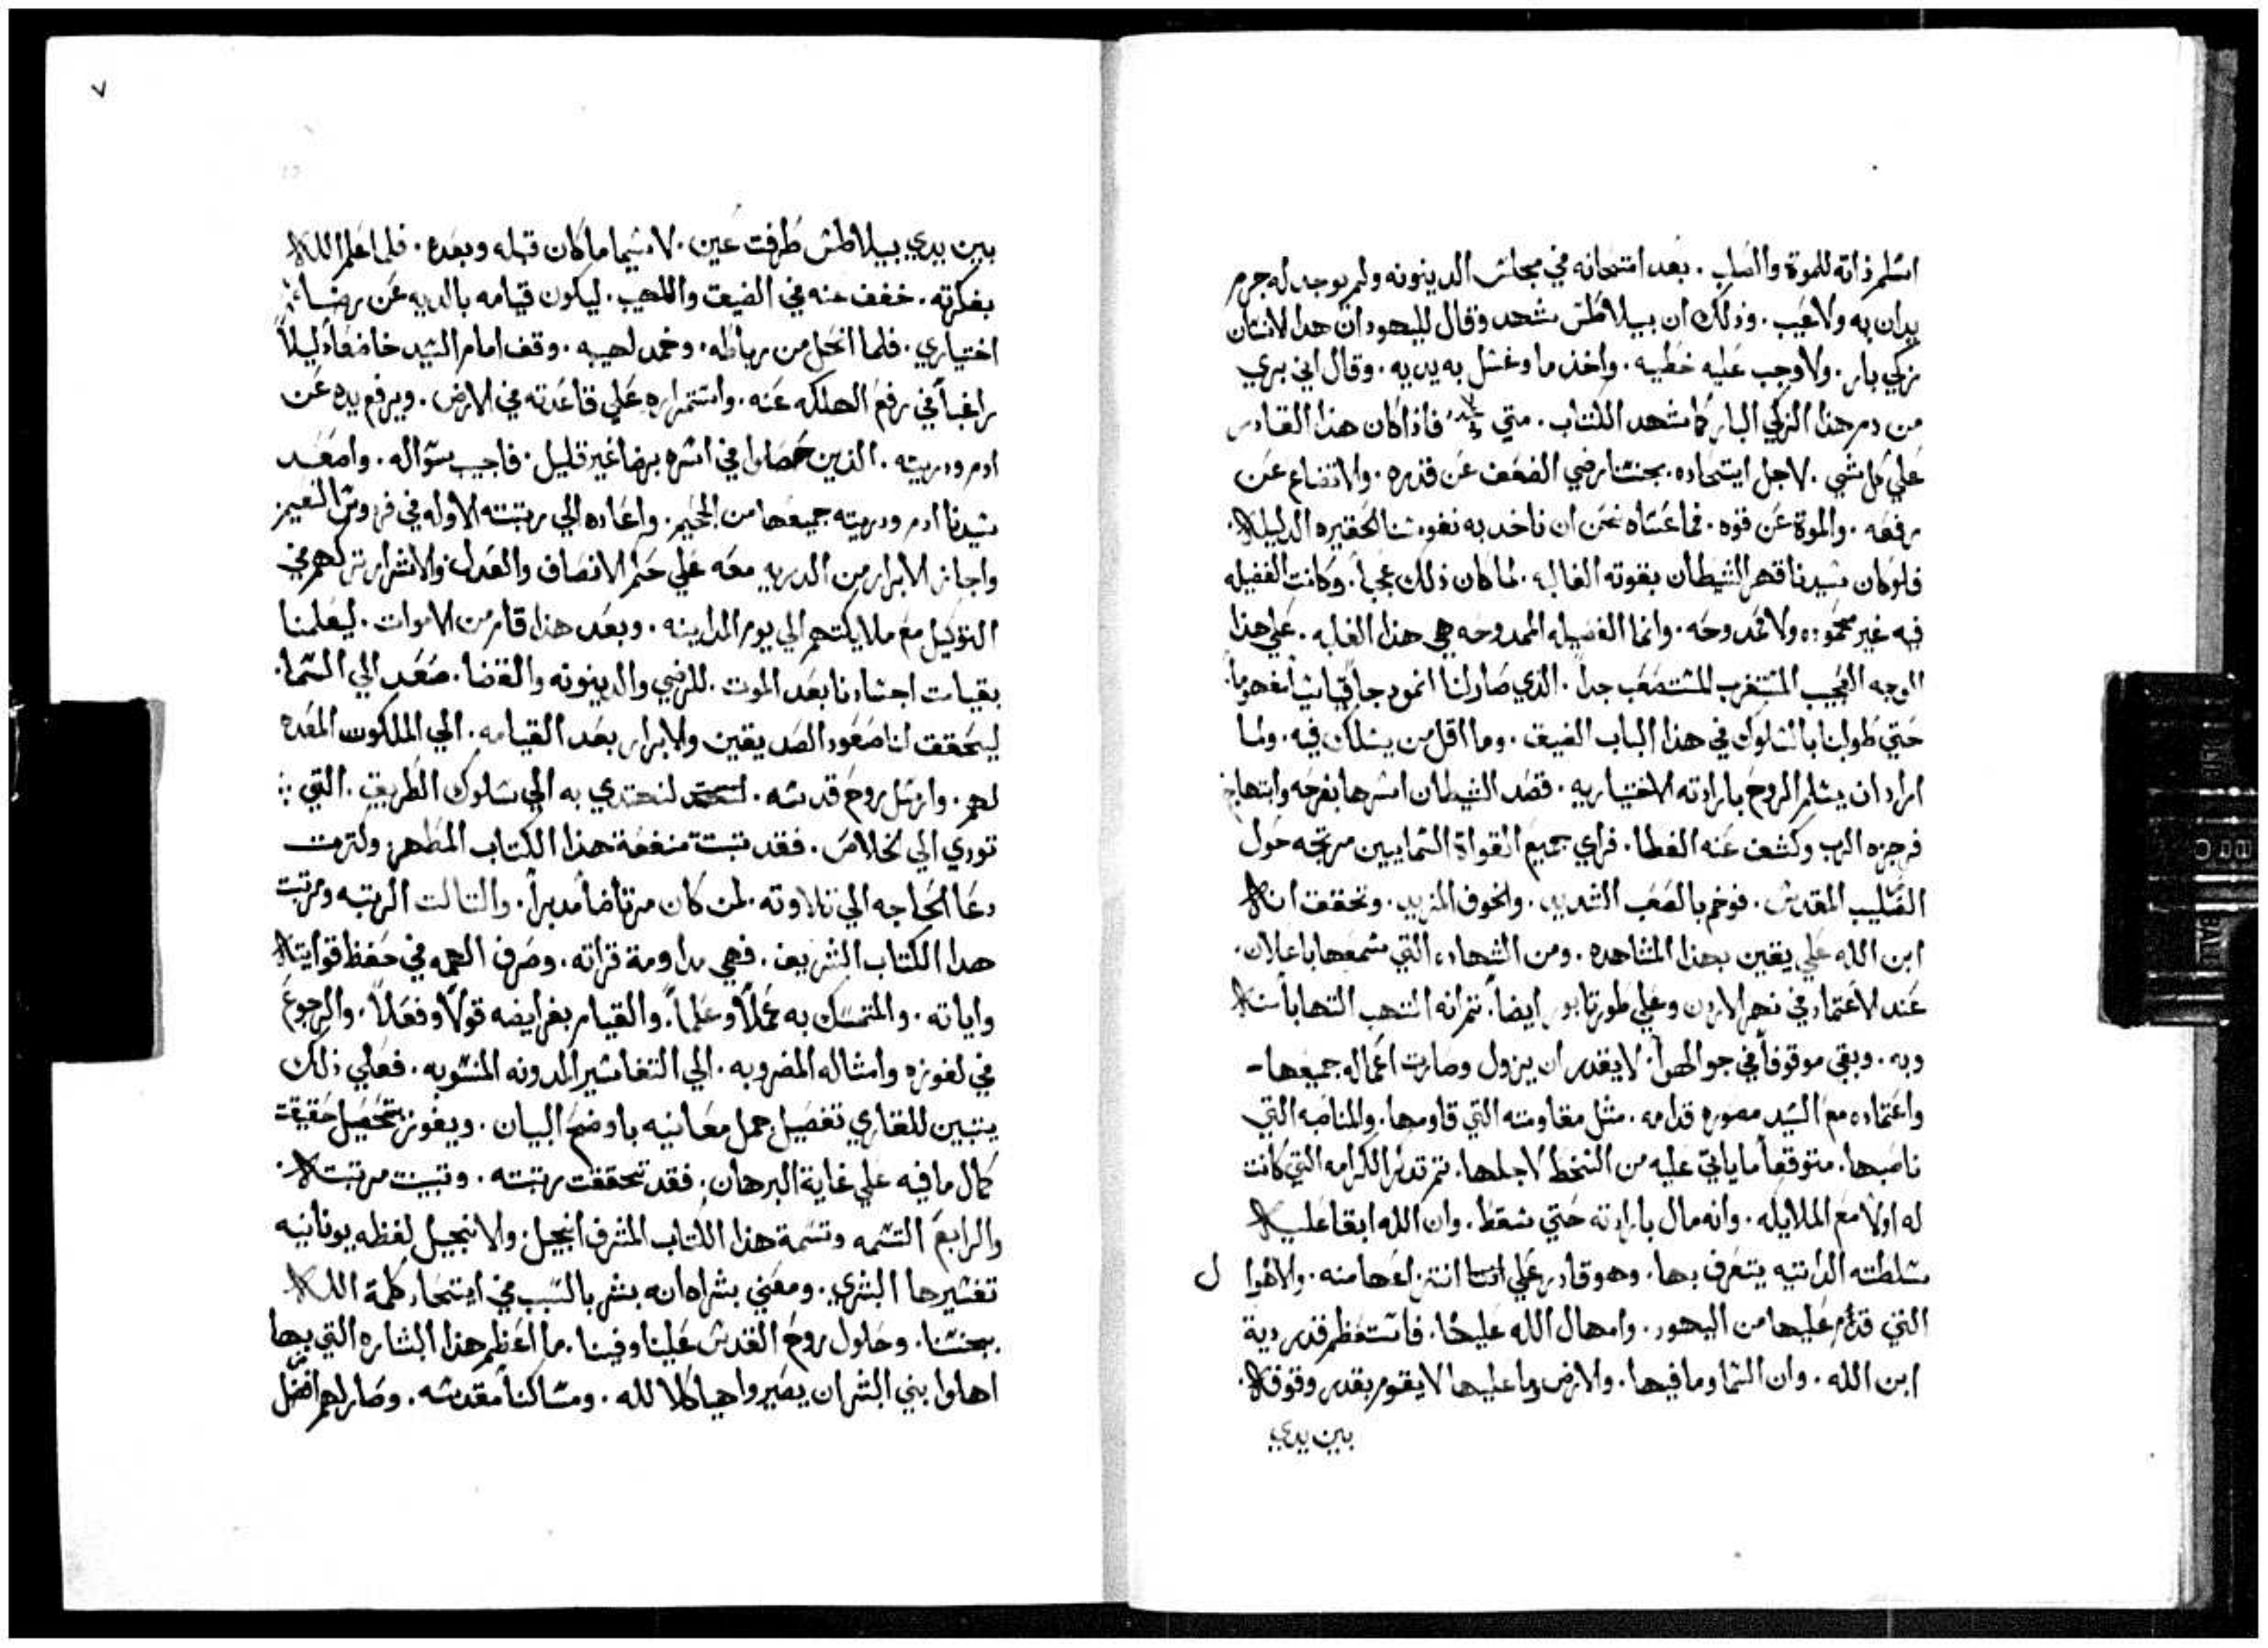 اسلم ذاته للموة والصلب . بعد امتحانه في مجالس الدينونه ولم يوجد له جرم
يدان به ولا عيب . وذلك ان بيلاطس شهد وقال لليهود ان هدا الانسان
زكي بار . ولا وجب عليه خطيه . واخذ ما وغسل به يديه . وقال اني بري
من دم هذا الزكي البار كما شهد الكتاب . متي فاذا كان هذا القادر
علي كل شي . لاجل ايتحاده بجنسنا رضي الضعف عن قدره . والاتضاع عن
رفعه . والموة عن قوه . فما عساه نحن ان ناخد به نفوسنا الحقيره الدليله .
فلو كان سيدنا قهر الشيطان بقوته الغاليه . لما كان ذلك عجباً . وكانت الفضيله
فيه غير محموده ولا ممدوحه . وانما الفضيله الممدوحه هي هذا الغايه . علي هذا
الوجه العجيب المستغرب المستصعب جداً . الذي صار لنا انمودجاً قياسياً مفهوماً .
حتي طولبنا بالسلوك في هذا الباب الضيق . وما اقل من يسلك فيه . ولما
اراد ان يسلم الروح بارادته الاختياريه . قصد الشيطان اسرها بفرحه وابتهاج
فزجره الرب وكشف عنه الغطا . فراي جميع القواة السماييين مرتجه حول
الصليب المقدس . فوخم بالصعب الشديد . والخوف المزيد . وتحقق انه
ابن الله علي يقين بهذا المشاهده . ومن الشهاده التي سمعها باعلان .
عند الاعتماد في نهر الاردن وعلي طور تابور ايضاً . ثم انه التهب التهاباً منه
وبه . وبقي موقوفاً في جو الهوا . لا يقدر ان يزول وصارت اعماله جميعها -
واعتماده مع السيد مصوره قدامه . مثل مقاومته التي قاومها . والمناصبه التي
ناصبها . متوقعاً ما ياتي عليه من السخط لاجلها . ثم تدكر الكرامه التي كانت
له اولاً مع الملايكه . وانه مال بارادته حتي سقط . وان الله ابقا عليه
سلطته الداتيه يتصرف بها . وهو قادر علي انتزاعها منه . والاهوا ل
التي قدم عليها من اليهود . وامهال الله عليها . فاستعظم قدر دية
ابن الله . وان السما وما فيها . والارض وما عليها لا يقوم بقدر وقوفه .
بين يدي
٧
بين يدي بيلاطس طرفت عين . لا سيما ما كان قبله وبعده . فلما علم الله
بفكرته . خفف عنه في الضيق واللهيب . ليكون قيامه بالديه عن رضاء
اختياري . فلما انحل من رباطه . وخمد لهيبه . وقف امام السيد خاضعاً دليلاً
راغباً في رفع الهلكه عنه . واستمراره علي قاعدته في الارض . ويرفع يده عن
ادم ودريته . الذين حصلوا في اسره برضا غير قليل . فاجيب سؤاله . واصعد
سيدنا ادم ودريته جميعها من الجحيم . واعاده الي مرتبته الاوله في فردوس النعيم
واجاز الابرار من الدريه معه علي حكم الانصاف والعدل والاشرار تركهم في
التوكيل مع ملايكتهم الي يوم المداينه . وبعد هذا قام من الاموات . ليعلمنا
بقيامت اجسادنا بعد الموت . للرضي والدينونه والقضا . صعد الي السما .
ليحقق لنا صعود الصديقين والابرار بعد القيامه . الي الملكوت المعده
لهم . وارسل روح قدسه . لنهتدي به الي سلوك الطريق . التي
تودي الي الخلاص . فقد تبتت منفعة هذا الكتاب المطهر ولزمت
دعا الحاجه الي تلاوته . لمن كان مرتاضاً مدبراً . والتالت الرتبه ومرتبت
هدا الكتاب الشريف . فهي مداومة قراته . وصرف الهمه في حفظ قوايته
واياته . والتمسك به عملاً وعلماً . والقيام بفرايضه قولاً وفعلاً . والرجوع
في لغوزه وامثاله المضروبه . الي التفاسير المدونه المنسوبه . فعلي ذلك
يتبين للقاري تفصيل جمل معانيه باوضح البيان . ويفوز بتحصيل حقيقت
كمال ما فيه علي غاية البرهان . فقد تحققت رتبته . وتبينت مرتبته .
والرابع التسمه وتسمة هذا الكتاب المشرف انجيل . والانجيل لفظه يونانيه
تفسيرها البشري . ومعني بشراه انه بشر بالسبب في ايتحاد كلمة الله
بجنسنا . وحلول روح القدس علينا وفينا . ما اعظم هذا البشاره التي بها
اهلوا بني البشر ان يصيروا هياكلا لله . ومساكناً مقدسه . وصار لهم افضل